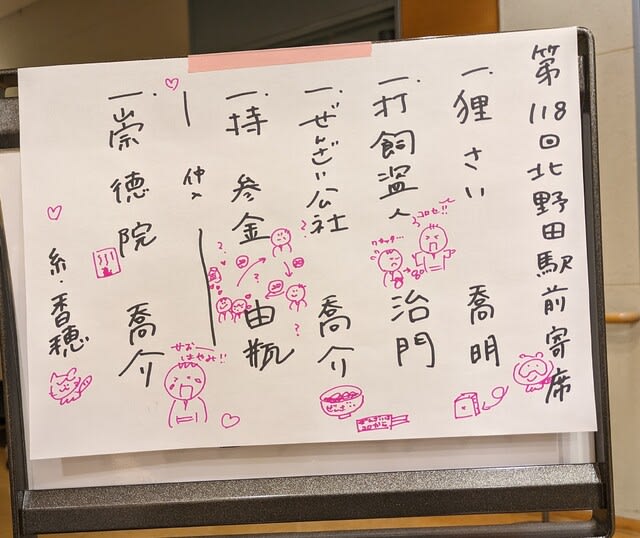 第118回北野田駅前寄席
一. 狸さい 喬明
一. 打飼盗人 治門
一. ぜんざい公社 喬介
一. 持参金 由瓶
仲入
一. 崇徳院 喬介
糸・香穂
コロセ!!
ぜんざい
せおはやみ!!